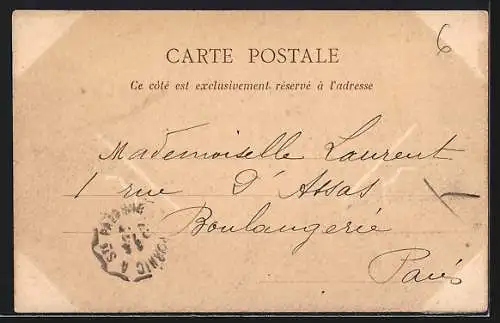 6
CARTE POSTALE
Ce côté est exclusivement réservé à l'adresse
Mademoiselle Laurent
1 rue D'Assas
Boulangerie
Paris
PORNIC A STE PAZANNE